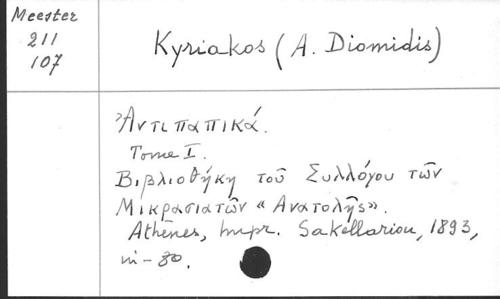 Meester
211
107
Kyriakos (A. Diomidis)
Ἀντιπαπικά.
Tome I.
Βιβλιοθήκη τοῦ Συλλόγου τῶν
Μικρασιατῶν « Ἀνατολῆς».
Athènes, Impr. Sakellariou, 1893,
in-80.